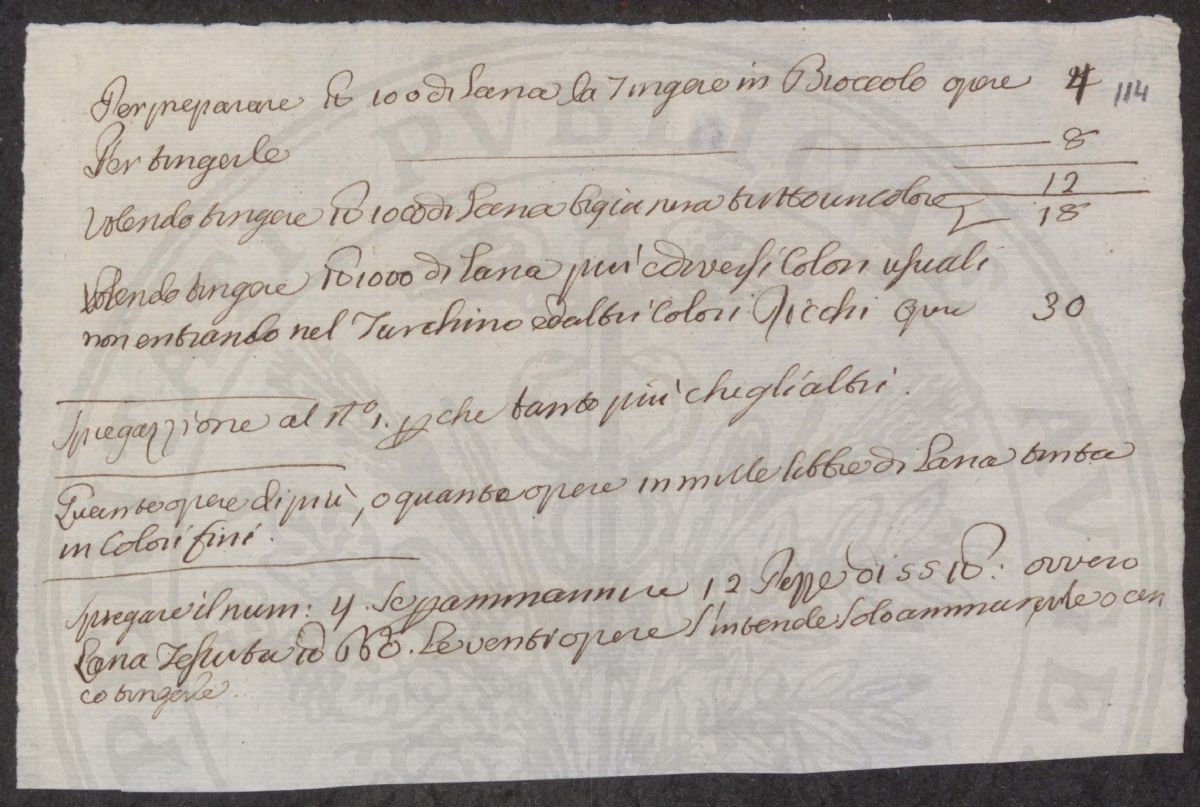 Per preparare ℔ 100 di Lana da Tingere in Broccolo opere 4
114
Per tingerle 8
12
Volendo tingere ℔ 1000 di Lana bigia nera tutto un colore 18
Volendo tingere ℔ 1000 di Lana più e diversi Colori usuali
non entrando nel Turchino ed altri Colori Ricchi opere 30
Spiegazzione al N.o 1. p che tanto più che gli altri.
Quante opere di più, o quante opere in mille libbre di Lana tinta
in Colori fini.
Spiegare il num: 4. Se p ammannire 12 Pezze di 55 ℔: ovvero
Lana Tessuta ℔ 660. Le venti opere s'intende solo ammannirle o an
co tingerle.
PVBLICAE